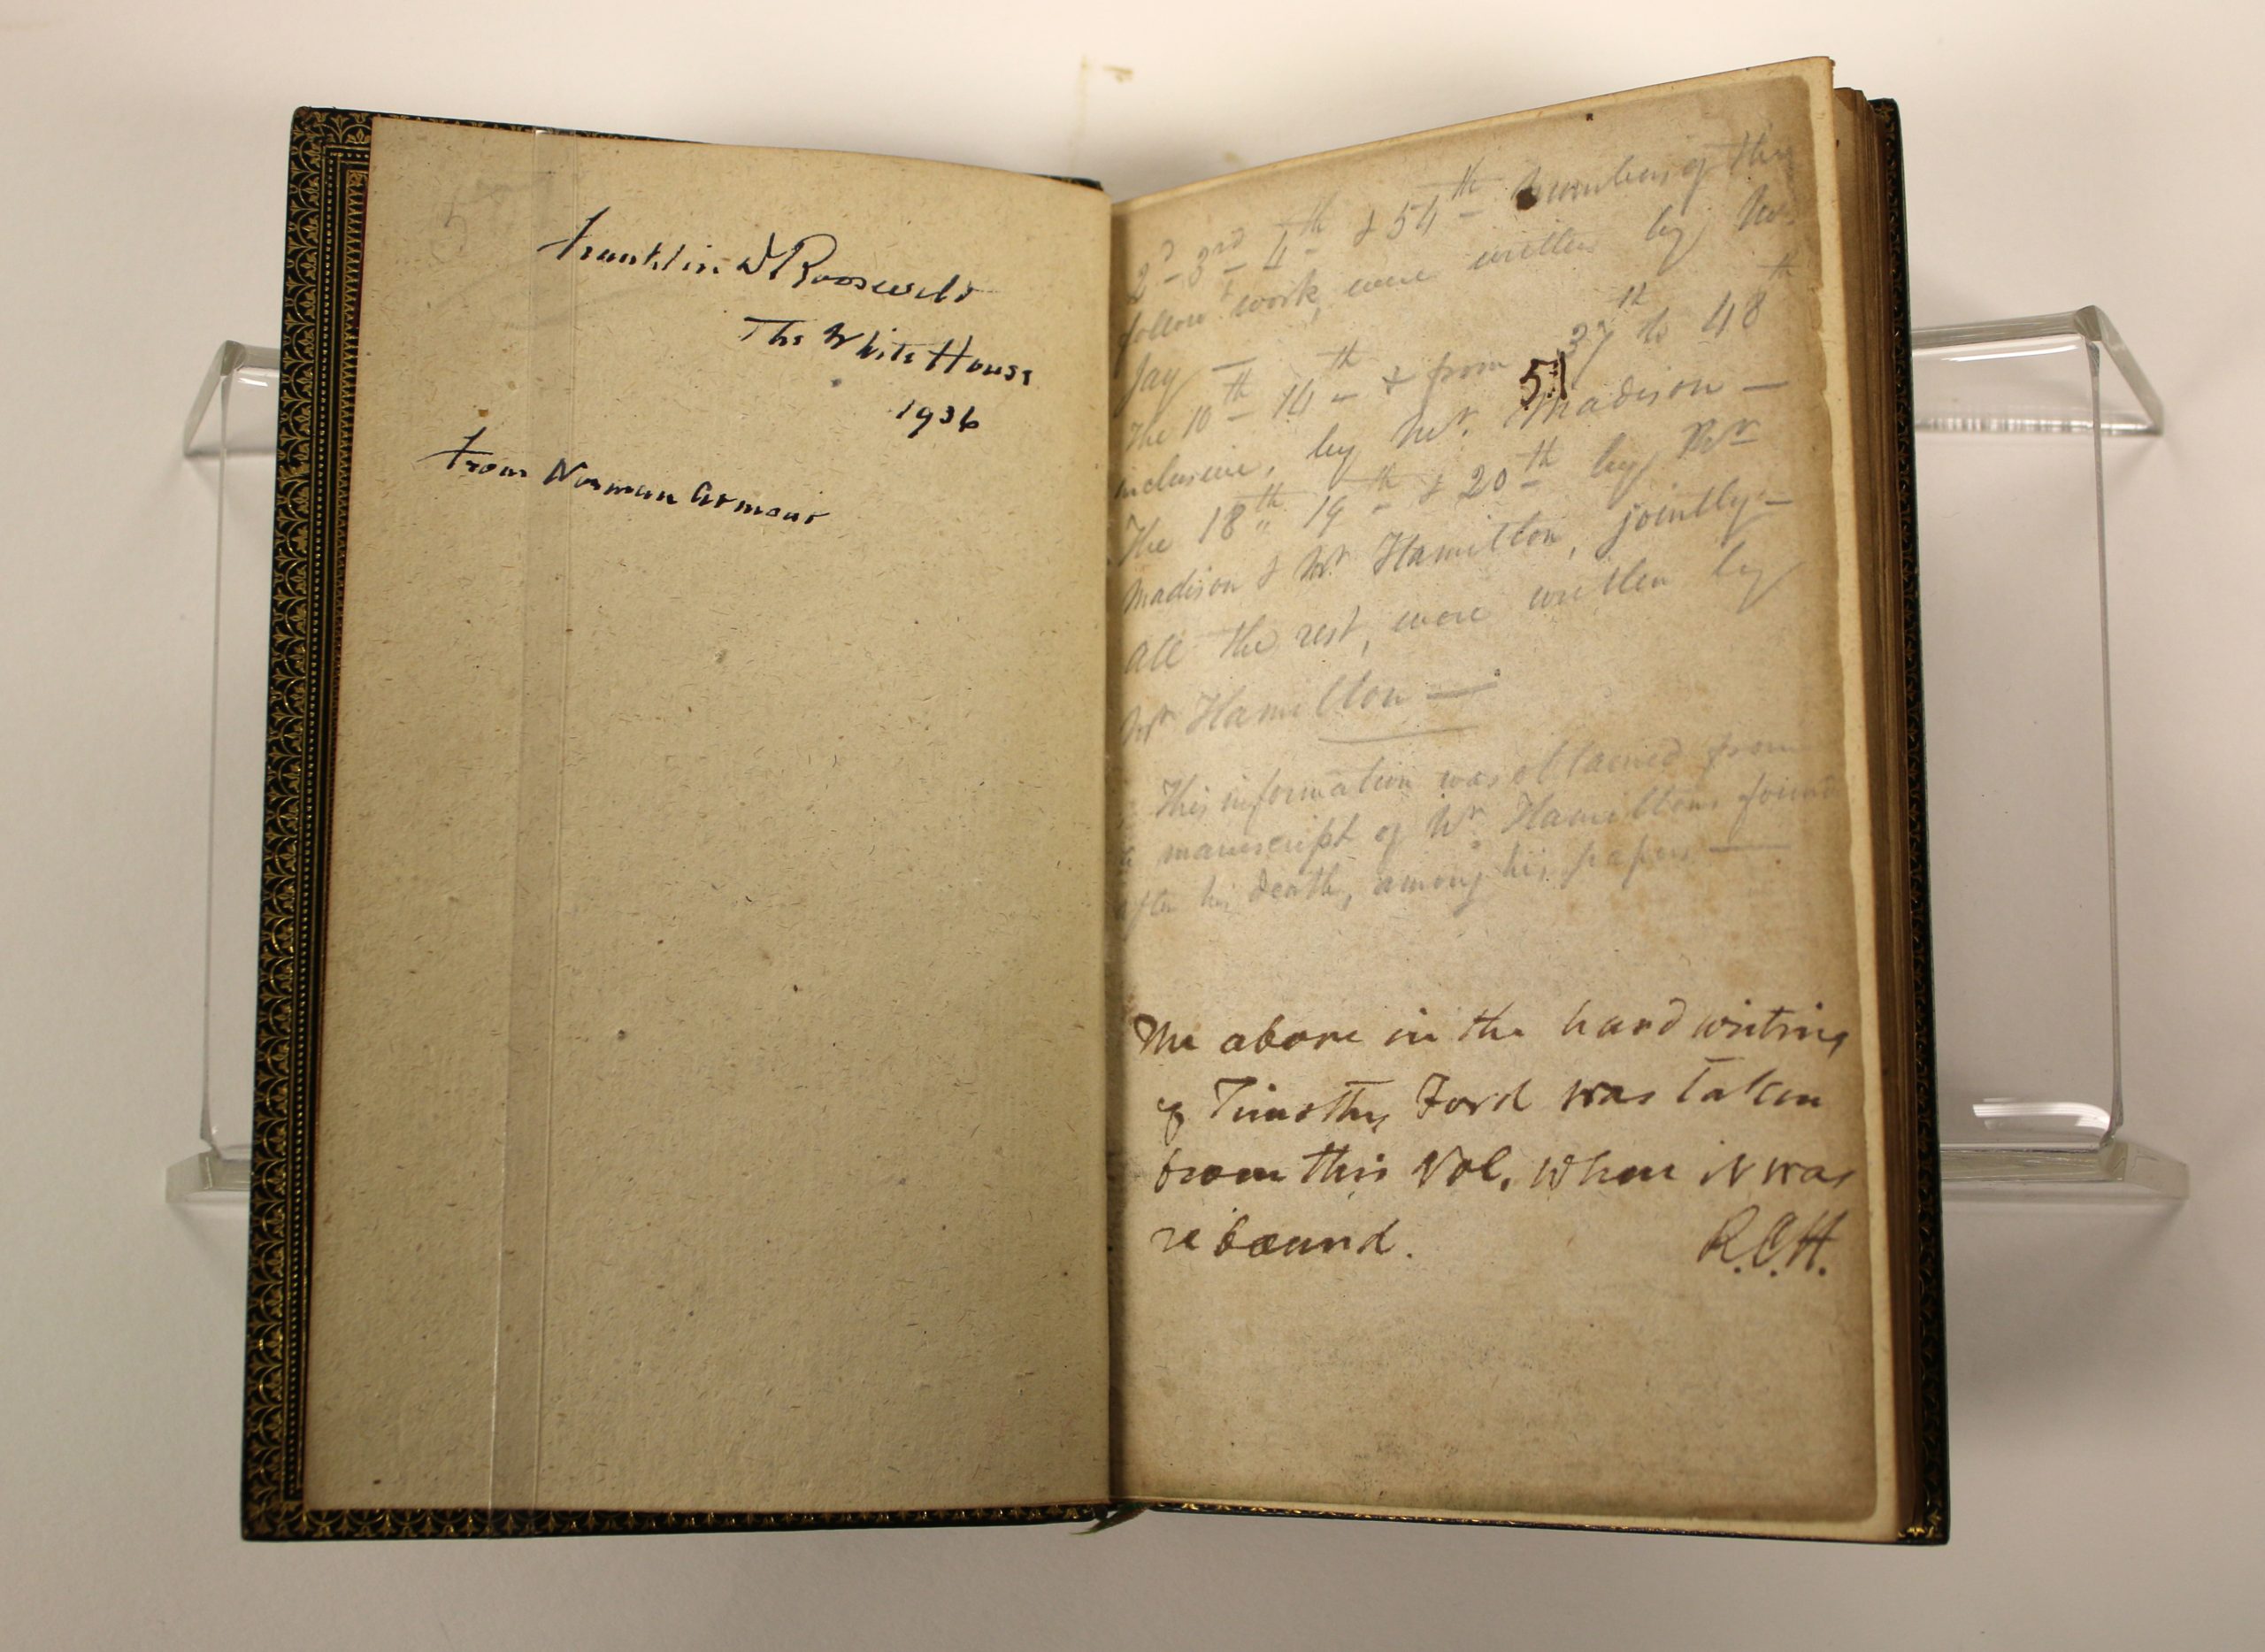 Franklin D Roosevelt
The White House
1936
From Norman Armour
2d 3rd 4th & 54th Numbers of this
follow'g work, were written by Mr.
Jay —
The 10th 14th & from 37th to 48th
51
inclusive, by Mr. Madison —
The 18th 19th & 20th by Mr
Madison & Mr Hamilton, jointly —
All the rest, were written by
Mr Hamilton —
This information was obtained from
a manuscript of Mr Hamiltons found
after his death, among his papers —
The above in the hand writing
of Timothy Ford was taken
from this Vol. when it was
rebound. R.C.H.